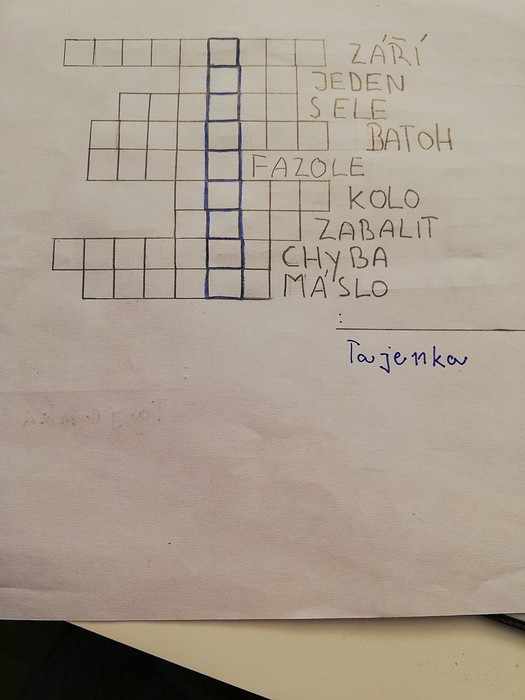 ZÁŘÍ
JEDEN
SELE
BATOH
FAZOLE
KOLO
ZABALIT
CHYBA
MÁSLO
:
Tajenka